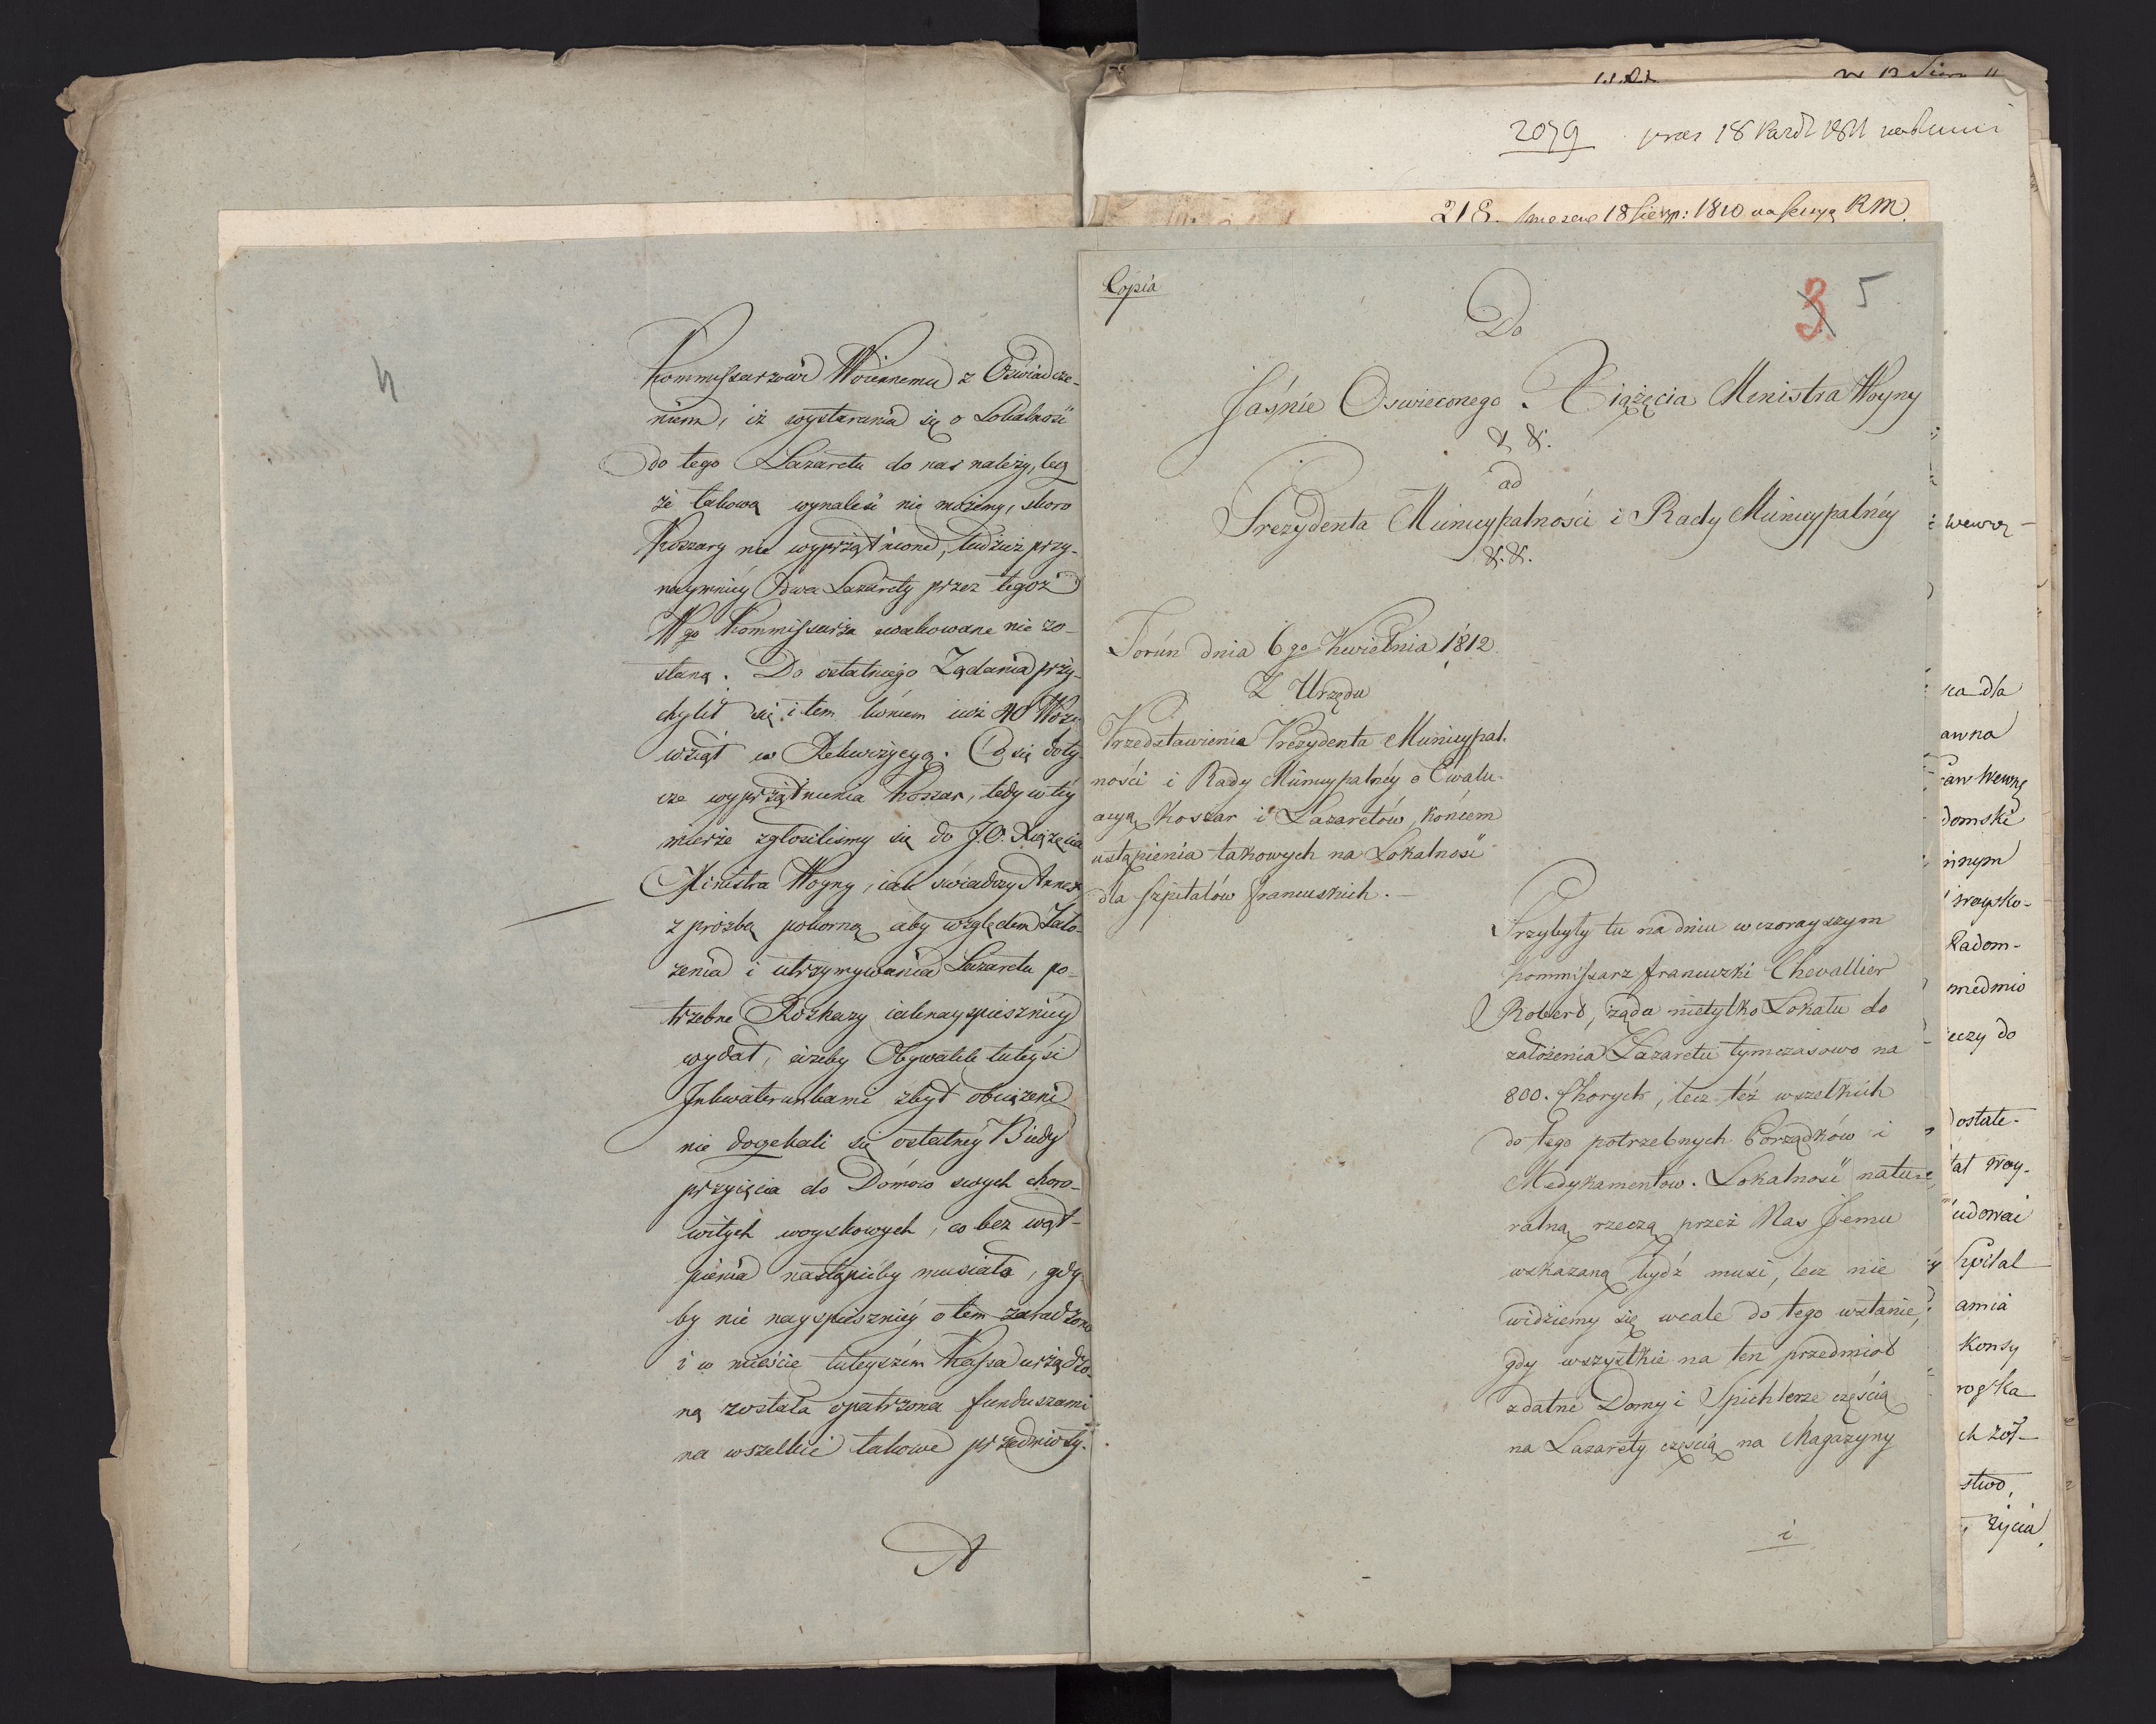 4
Kommissarzowi Woiennemu z Oświadcze-
niem, iż wystarania się o Lokalność
do tego Lazaretu do nas należy, lecz
że takową wynaleść nie możemy, skoro
Koszary nie wyprzątnione, tudzież przy-
naymniey dwa Lazarety przez tegoż
Wgo Kommissarza ewakowane nie zo-
staną. Do ostatniego Żądania przy-
chylił się i tem końcem iuż 40 Wozy
wziął w Rekwizycyą. Co się doty-
cze wyprzątnienia Koszar, tedy w tey
mierze zgłosiliśmy się do J.O. Xiążęcia
Ministra Woyny, iak świadczy Annex
z prośbą pokorną aby względem Zało-
żenia i utrzymywania Lazaretu po-
trzebne Rozkazy iaknayspieszniey
wydał, ażeby Obywatele tuteyśi
Inkwaterunkami zbyt obciążeni
nie doczekali się ostatney Biedy
przyięcia do Domów swych choro-
witych woyskowych, co bez wąt-
pienia nastąpićby musiało, gdy-
by nie nayspieszniey o tem zaradzono
i w mieście tuteyszem Kassa urządzo-
ną została opatrzona funduszami
na wszelkie takowe przedmioty.
A
2079 18 1811
218. 18 Sierp: 1810 na Sessyą RM.
Copia
3 5
Do
Jaśnie Oswieconego Xiążęcia Ministra Woyny
&. &.
ad
Prezydenta Municypalności i Rady Municypalnéy
&. &.
Toruń dnia 6go Kwietnia 1812
Z Urzędu
Przedstawienie Prezydenta Municypal-
ności i Rady Municypalnéy o Ewaku-
acyą Koszar i Lazaretów, końcem
ustąpienia takowych na Lokalność
dla szpitalów francuskich.
Przybyły tu na dniu wczorayszym
Kommissarz francuzki Chevallier
Robert, żąda nietylko Lokalu do
założenia Lazaretu tymczasowo na
800. Chorych, lecz też wszelkich
do tego potrzebnych Porządków i
Medykamentów. Lokalność natu-
ralną rzeczą przez Nas Jemu
wskazaną bydź musi, lecz nie
widziemy się wcale do tego wstanie,
gdy wszystkie na ten przedmiot
zdatne Domy i Spichlerze częścią
na Lazarety częścią na Magazyny
i
wewnę-
ka dla
awna
raw Wewnę
domski
innym
woysko-
Radom-
miedmio
eczy do
dostate-
tat woy-
udować
Szpital
amia
Konsy
rogska
ch żoł-
stwo,
życia,